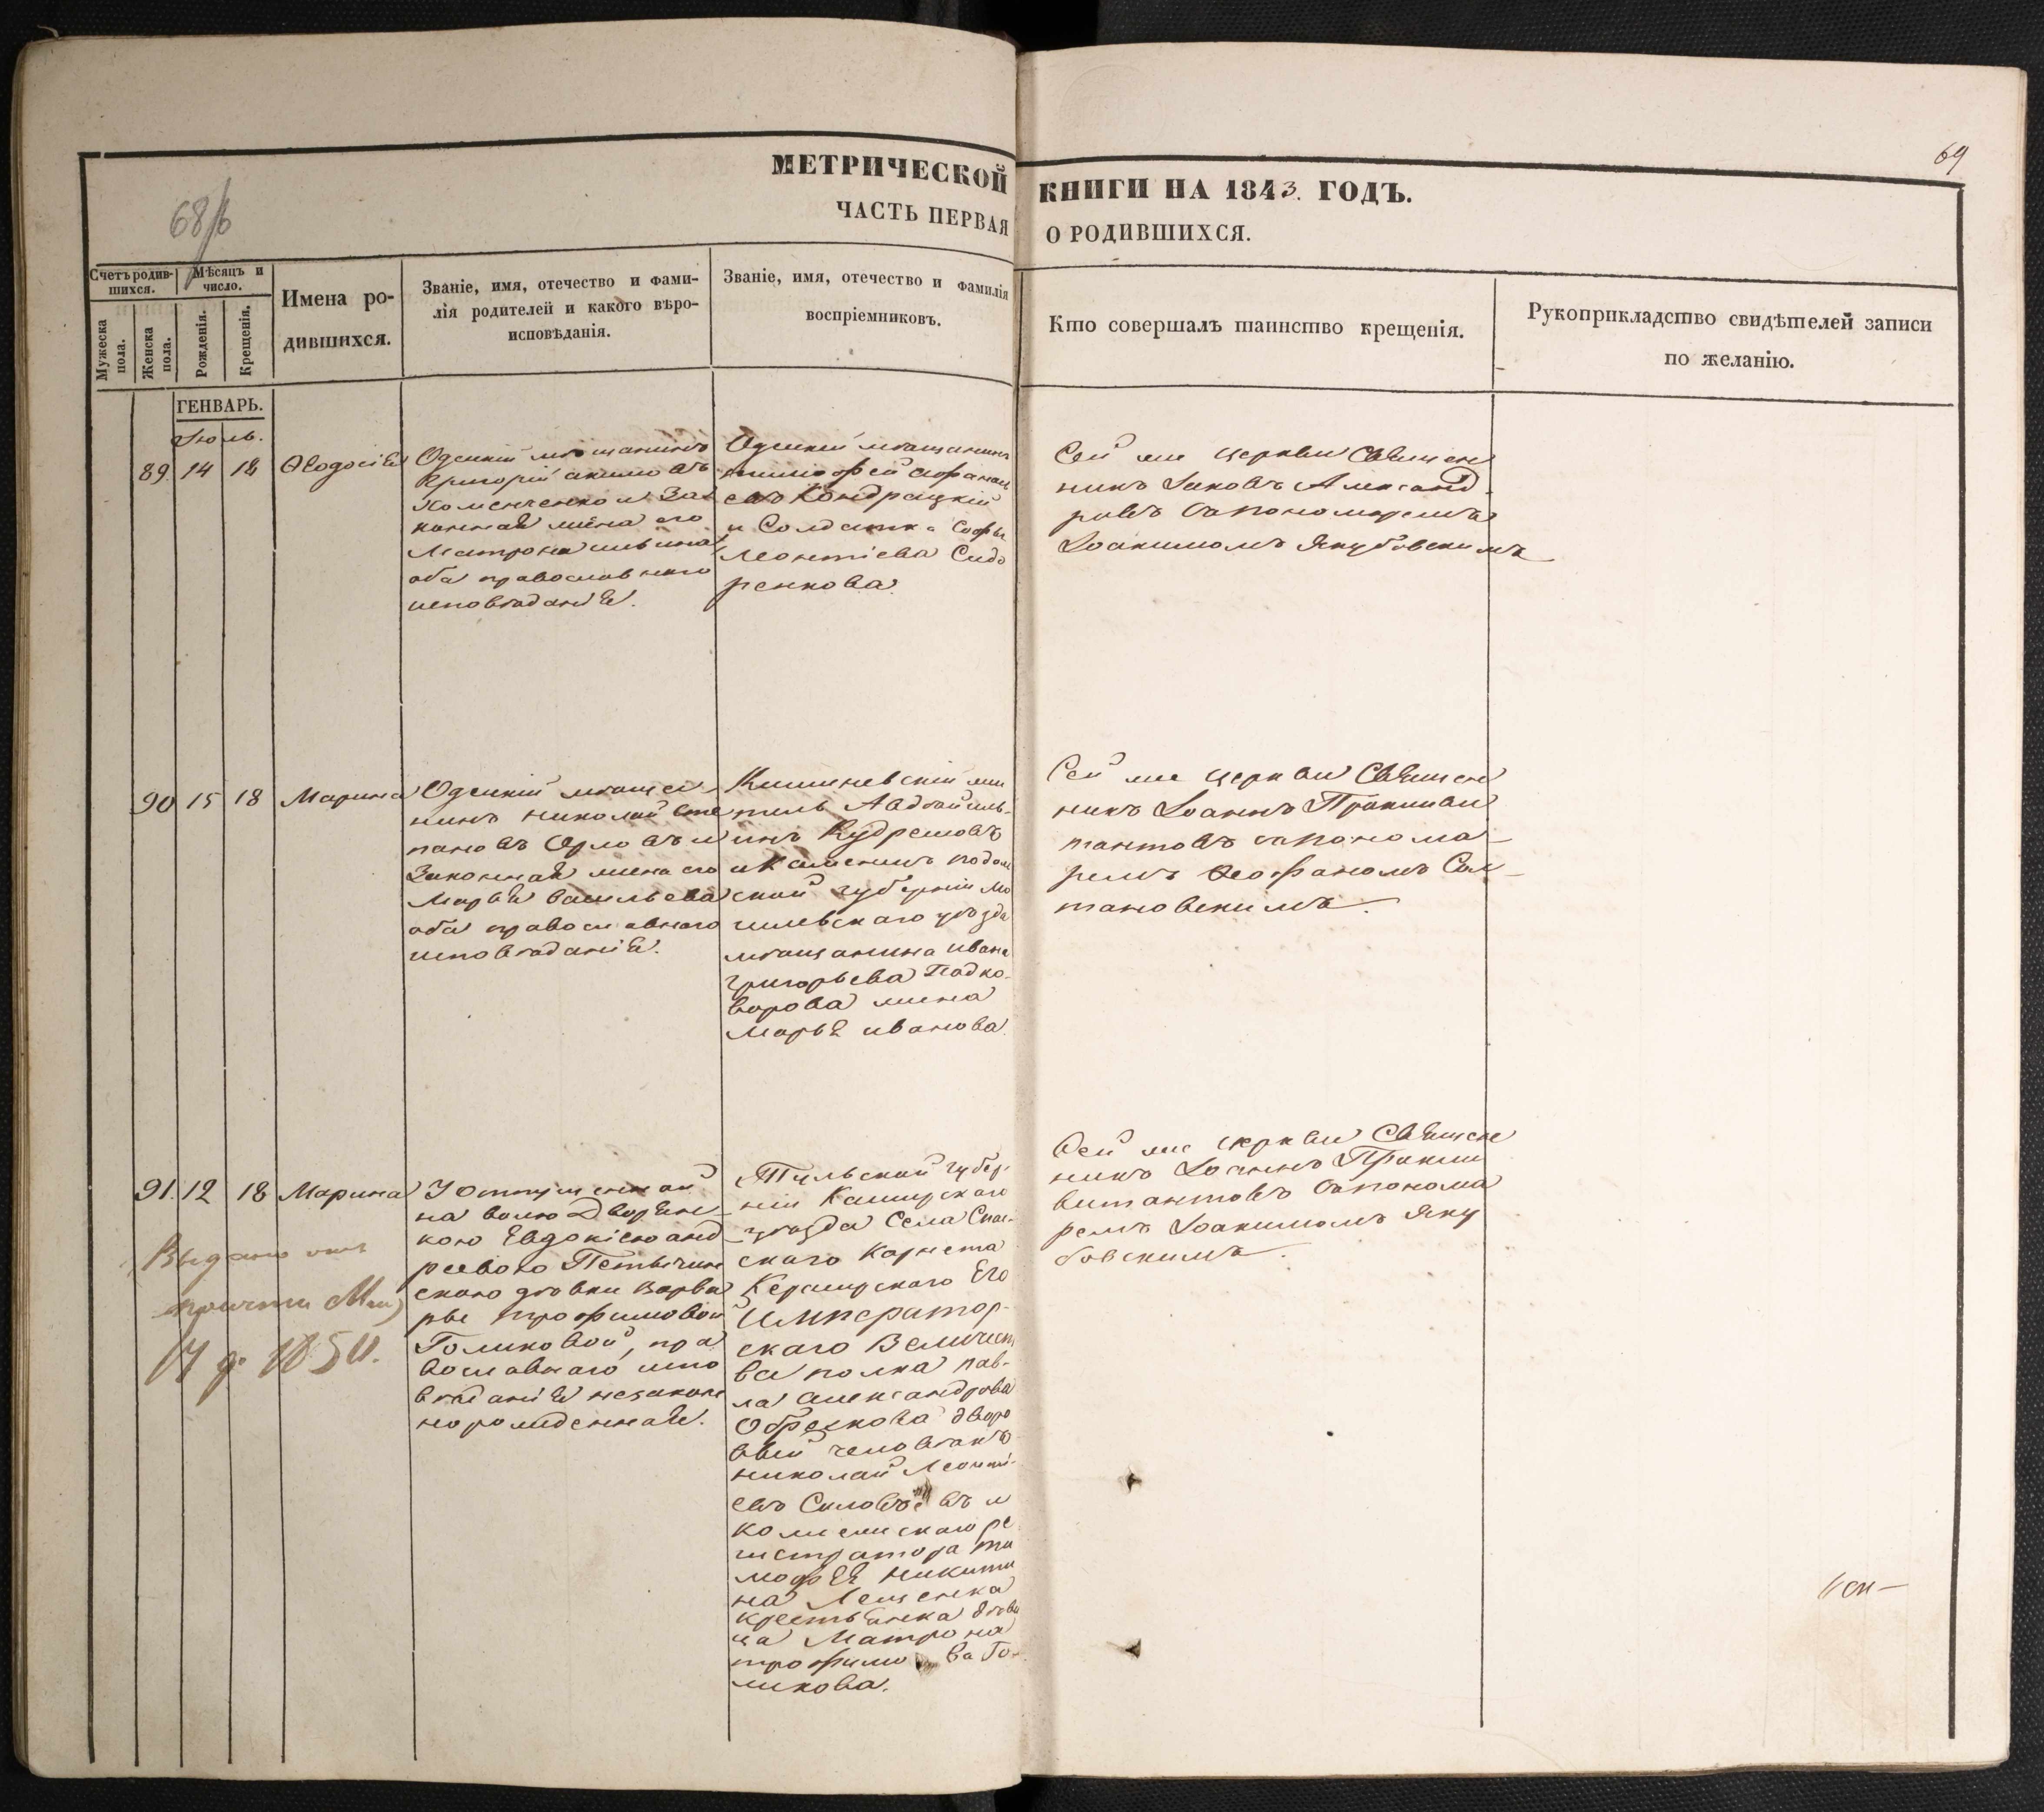 69
68/б
МЕТРИЧЕСКОЙ КНИГИ НА 1843. ГОДЪ.
ЧАСТЬ ПЕРВАЯ О РОДИВШИХСЯ.
Счетъ родив-
шихся.
Мужеска
пола.
Женска
пола.
Мѣсяцъ и
число.
Рожденія.
Крещенія.
Имена ро-
дившихся.
Званіе, имя, отечество и фами-
лія родителей и какого вѣро-
исповѣданія.
Званіе, имя, отечество и фамилія
воспріемниковъ.
Кто совершалъ таинство крещенія.
Рукоприкладство свидѣтелей записи
по желанію.
ГЕНВАРЬ.
Іюль.
89. 14 18 Ѳеодосія
Одескій мѣщанинъ
Григорій акимовъ
Хоменченко и Зак
конная жена его
Матрона
оба православнаго
исповѣданія.
Одескій мѣщанинъ
тимофей афанась
евъ Кондрацкій
и Солдатка Софья
Леонтіева Сидо
ренкова.
Сей же церкви Священ
никъ Іаковъ Александ
ровъ съ пономаремъ
Іоакимомъ Якубовскимъ
90 15 18 Марина
Одескій мѣща
нинъ николай сте
пановъ Орловъ и
Законная жена его
Марья васильева
оба православнаго
исповѣданія.
Кишиневскій жи
тель Авдѣй иль-
инъ Кудрешовъ
и Каменецъ подол
ской губерніи Мо
гилевскаго уѣзда
мѣщанина ивана
григорьева Подко-
ворова жена
Марья иванова.
Сей же церкви Священ
никъ Іоаннъ Пракши
тантовъ съ понома
ремъ Ѳеофаномъ Сол
тановскимъ.
91. 12 18 Марина
У отпущенной
на волю Дворян-
кою Евдокіею анд
реевою
скою дѣвки Варва
ры трофимовой
Голиковой, пра
вославнаго испо
вѣданія незаконн
норожденная.
Тульской губер-
ніи Каширскаго
уѣзда Села Спас-
скаго Корнета
Его
Император-
скаго Величест
ва полка пав-
ла александрова
Обрезкова дворо
вый человѣкъ
николай Леонті-
евъ Соловьевъ и
колежскаго ре
гистратора ти
мофея никити
на Лещенка
крестьянка дѣви
ца Матрона
трофимова Го-
ликова.
Сей же церкви Священ
никъ Іоаннъ Пракши
витантовъ съ понома
ремъ Іоакимомъ Яку
бовскимъ.
Выдано
17 д. 1850.